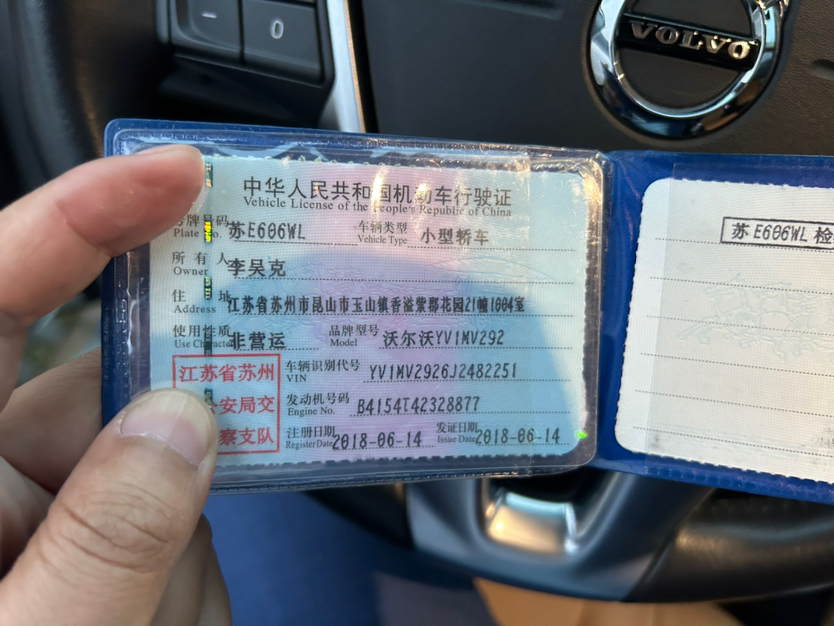 0
VOLVO
中华人民共和国机动车行驶证
Vehicle License of the People's Republic of China
号牌号码 苏E606WL 车辆类型 小型轿车
Plate No. Vehicle Type
所有人 李吴克
Owner
住址 江苏省苏州市昆山市玉山镇香溢紫郡花园21幢1004室
Address
使用性质 非营运 品牌型号 沃尔沃YV1MV292
Use Character Model
江苏省苏州
安局交
察支队
车辆识别代号 YV1MV2926J2482251
VIN
发动机号码 B4154T42328877
Engine No.
注册日期 2018-06-14 发证日期 2018-06-14
Register Date Issue Date
苏E606WL 检